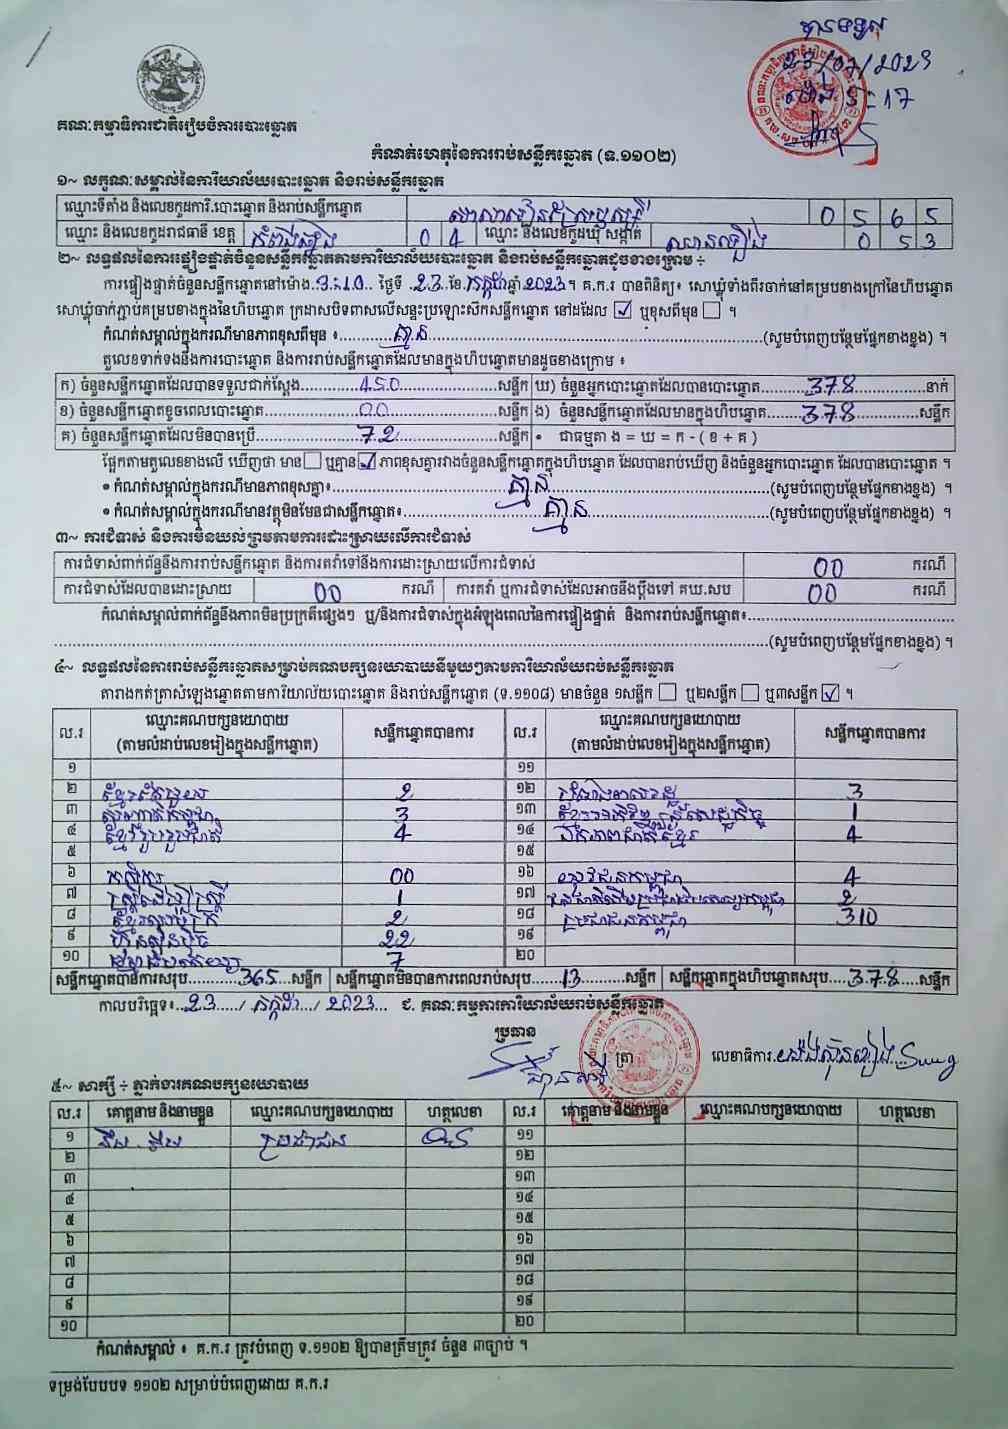 បានទទួល
23/07/2023
ម៉ោង 5:17
គណៈកម្មាធិការជាតិរៀបចំការបោះឆ្នោត
កំណត់ហេតុនៃការរាប់សន្លឹកឆ្នោត (ទ.១១០២)
១~ លក្ខណៈសម្គាល់នៃការិយាល័យបោះឆ្នោត និងរាប់សន្លឹកឆ្នោត
ឈ្មោះទីតាំង និងលេខកូដការិ.បោះឆ្នោត និងរាប់សន្លឹកឆ្នោត 0 5 6 5
ឈ្មោះ និងលេខកូដរាជធានី ខេត្ត កំពង់ឆ្នាំង 0 4 ឈ្មោះ និងលេខកូដឃុំ សង្កាត់ 0 5 3
២~ លទ្ធផលនៃការផ្ទៀងផ្ទាត់ចំនួនសន្លឹកឆ្នោតតាមការិយាល័យបោះឆ្នោត និងរាប់សន្លឹកឆ្នោតដូចខាងក្រោម ÷
ការផ្ទៀងផ្ទាត់ចំនួនសន្លឹកឆ្នោតនៅម៉ោង 3:10 ថ្ងៃទី 23 ខែ កក្កដា ឆ្នាំ 2023។ គ.ក.រ បានពិនិត្យ៖ សោឃ្លុំទាំងពីរចាក់នៅគម្របខាងក្រៅនៃហិបឆ្នោត
សោឃ្លុំចាក់ភ្ជាប់គម្របខាងក្នុងនៃហិបឆ្នោត ក្រដាសបិទពាសលើសន្ទះប្រឡោះសិកសន្លឹកឆ្នោត នៅដដែល ☑ ឬខុសពីមុន ☐ ។
កំណត់សម្គាល់ក្នុងករណីមានភាពខុសពីមុន ÷ គ្មាន (សូមបំពេញបន្ថែមផ្នែកខាងខ្នង) ។
តួលេខទាក់ទងនឹងការបោះឆ្នោត និងការរាប់សន្លឹកឆ្នោតដែលមានក្នុងហិបឆ្នោតមានដូចខាងក្រោម ៖
ក) ចំនួនសន្លឹកឆ្នោតដែលបានទទួលជាក់ស្តែង 450 សន្លឹក ឃ) ចំនួនអ្នកបោះឆ្នោតដែលបានបោះឆ្នោត 378 នាក់
ខ) ចំនួនសន្លឹកឆ្នោតខូចពេលបោះឆ្នោត 00 សន្លឹក ង) ចំនួនសន្លឹកឆ្នោតដែលមានក្នុងហិបឆ្នោត 378 សន្លឹក
គ) ចំនួនសន្លឹកឆ្នោតដែលមិនបានប្រើ 72 សន្លឹក • ជាធម្មតា ង = ឃ = ក - ( ខ + គ )
ផ្អែកតាមតួលេខខាងលើ ឃើញថា មាន ☐ ឬគ្មាន ☑ ភាពខុសគ្នារវាងចំនួនសន្លឹកឆ្នោតក្នុងហិបឆ្នោត ដែលបានរាប់ឃើញ និងចំនួនអ្នកបោះឆ្នោត ដែលបានបោះឆ្នោត ។
• កំណត់សម្គាល់ក្នុងករណីមានភាពខុសគ្នា៖ គ្មាន (សូមបំពេញបន្ថែមផ្នែកខាងខ្នង) ។
• កំណត់សម្គាល់ក្នុងករណីមានវត្ថុមិនមែនជាសន្លឹកឆ្នោត៖ គ្មាន (សូមបំពេញបន្ថែមផ្នែកខាងខ្នង) ។
៣~ ការជំទាស់ និងការមិនយល់ព្រមតាមការដោះស្រាយលើការជំទាស់
ការជំទាស់ពាក់ព័ន្ធនឹងការរាប់សន្លឹកឆ្នោត និងការតវ៉ាទៅនឹងការដោះស្រាយលើការជំទាស់ 00 ករណី
ការជំទាស់ដែលបានដោះស្រាយ 00 ករណី ការតវ៉ា ឬការជំទាស់ដែលអាចនឹងប្តឹងទៅ គឃ.សប 00 ករណី
កំណត់សម្គាល់ពាក់ព័ន្ធនឹងភាពមិនប្រក្រតីផ្សេងៗ ឬ/និងការជំទាស់ក្នុងអំឡុងពេលនៃការផ្ទៀងផ្ទាត់ និងការរាប់សន្លឹកឆ្នោត៖
(សូមបំពេញបន្ថែមផ្នែកខាងខ្នង) ។
៤~ លទ្ធផលនៃការរាប់សន្លឹកឆ្នោតសម្រាប់គណបក្សនយោបាយនីមួយៗតាមការិយាល័យរាប់សន្លឹកឆ្នោត
តារាងកត់ត្រាសំឡេងឆ្នោតតាមការិយាល័យបោះឆ្នោត និងរាប់សន្លឹកឆ្នោត (ទ.១១០៨) មានចំនួន ១សន្លឹក ☐ ឬ២សន្លឹក ☐ ឬ៣សន្លឹក ☑ ។
ល.រ ឈ្មោះគណបក្សនយោបាយ (តាមលំដាប់លេខរៀងក្នុងសន្លឹកឆ្នោត) សន្លឹកឆ្នោតបានការ ល.រ ឈ្មោះគណបក្សនយោបាយ (តាមលំដាប់លេខរៀងក្នុងសន្លឹកឆ្នោត) សន្លឹកឆ្នោតបានការ
១ ១១
២ 2 ១២ 3
៣ 3 ១៣ 1
៤ ខ្មែររួបរួមជាតិ 4 ១៤ ឯកភាពជាតិខ្មែរ 4
៥ ១៥
៦ កសិករ 00 ១៦ យុវជនកម្ពុជា 4
៧ ស្ត្រីដើម្បីស្ត្រី 1 ១៧ 2
៨ 2 ១៨ ប្រជាជនកម្ពុជា 310
៩ ហ៊្វុនស៊ិនប៉ិច 22 ១៩
១០ 7 ២០
សន្លឹកឆ្នោតបានការសរុប 365 សន្លឹក សន្លឹកឆ្នោតមិនបានការពេលរាប់សរុប 13 សន្លឹក សន្លឹកឆ្នោតក្នុងហិបឆ្នោតសរុប 378 សន្លឹក
កាលបរិច្ឆេទ៖ 23 / កក្កដា / 2023 ជ. គណៈកម្មការការិយាល័យរាប់សន្លឹកឆ្នោត
ប្រធាន
ត្រា លេខាធិការ
៥~ សាក្សី ÷ ភ្នាក់ងារគណបក្សនយោបាយ
ល.រ គោត្តនាម និងនាមខ្លួន ឈ្មោះគណបក្សនយោបាយ ហត្ថលេខា ល.រ គោត្តនាម និងនាមខ្លួន ឈ្មោះគណបក្សនយោបាយ ហត្ថលេខា
១ ប្រជាជន ១១
២ ១២
៣ ១៣
៤ ១៤
៥ ១៥
៦ ១៦
៧ ១៧
៨ ១៨
៩ ១៩
១០ ២០
កំណត់សម្គាល់ ៖ គ.ក.រ ត្រូវបំពេញ ទ.១១០២ ឱ្យបានត្រឹមត្រូវ ចំនួន ៣ច្បាប់ ។
ទម្រង់បែបបទ ១១០២ សម្រាប់បំពេញដោយ គ.ក.រ